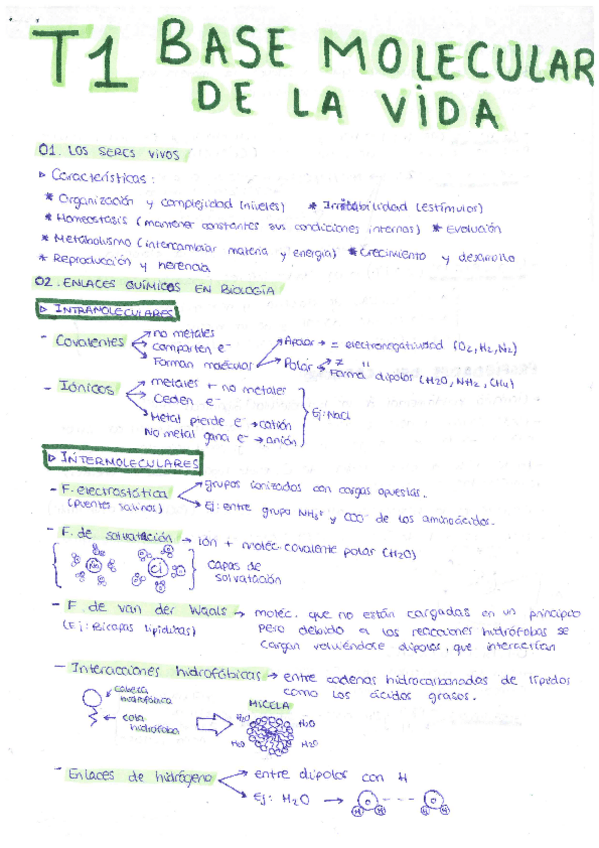 T1 BASE MOLECULAR
DE LA VIDA
01. LOS SERES VIVOS
▷ Características:
* Organización y complejidad (niveles) * Irritabilidad (estímulos)
* Homeostasis (mantener constantes sus condiciones internas) * Evolución
* Metabolismo (intercambiar materia y energía) * Crecimiento y desarrollo
* Reproducción y herencia
02. ENLACES QUÍMICOS EN BIOLOGÍA
▷ INTRAMOLECULARES
- Covalentes → no metales
→ comparten e⁻
→ Forman moléculas → Apolar → = electronegatividad (O₂, H₂, N₂)
→ Polar → ≠ "
Forma dipolos (H₂O, NH₂, CH₄)
- Iónicos → metales + no metales
→ Ceden e⁻
→ Metal pierde e⁻ → catión
No metal gana e⁻ → anión
Ej: NaCl
▷ INTERMOLECULARES
- F. electrostática → grupos ionizados con cargas opuestas.
(puentes salinos) → Ej: entre grupo NH₃⁺ y COO⁻ de los aminoácidos.
- F. de solvatación → ión + moléc. covalente polar (H₂O)
Na Cl
capas de
solvatación
- F. de van der Waals → moléc. que no están cargadas en un principio
(Ej: bicapas lipídicas) pero debido a las reacciones hidrófobas se
cargan volviéndose dipolos, que interactúan
- Interacciones hidrofóbicas → entre cadenas hidrocarbonadas de lípidos
como los ácidos grasos.
← cabeza
hidrofóbica
← cola
hidrófoba
MICELA
H₂O H₂O
H₂O H₂O
- Enlaces de hidrógeno → entre dipolos con H
→ Ej: H₂O → O --- O
H H H H